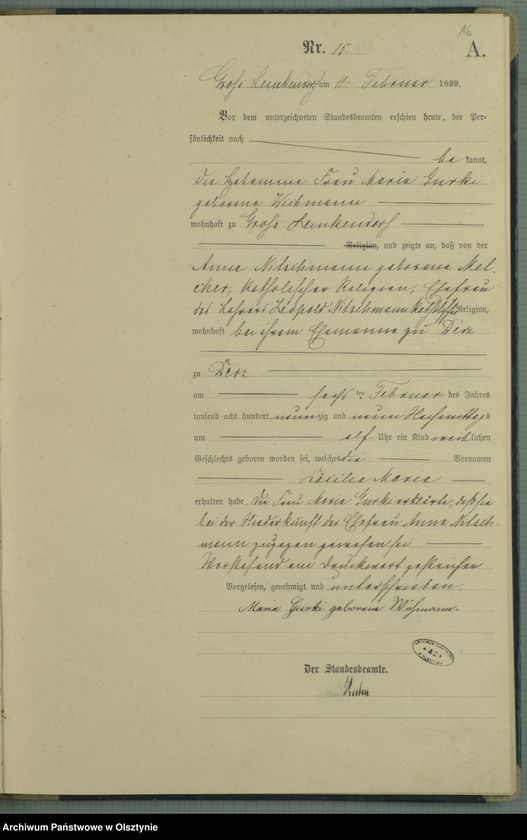 16
Nr. 15.
A.
Groß Lemkendorf am 11. Februar 1899.
Vor dem unterzeichneten Standesbeamten erschien heute, der Per-
sönlichkeit nach
be kannt,
die Hebamme Frau Maria Gurki
geborene Wichmann
wohnhaft zu Groß Lemkendorf
Religion, und zeigte an, daß von der
Anna Nitschmann geborene Mel-
cher, katholischer Religion, Ehefrau
des Lehrers Leopold Nitschmann katholischer Religion,
wohnhaft bei ihrem Ehemanne zu Derz
zu Derz
am sechsten Februar des Jahres
tausend acht hundert neunzig und neun Nachmittags
um elf Uhr ein Kind weiblichen
Geschlechts geboren worden sei, welches die Vornamen
Cäcilia Maria
erhalten habe. Die Frau Maria Gurki erklärte, daß sie
bei der Niederkunft der Ehefrau Anna Nitsch-
mann zugegen gewesen sei
Vorstehend ein Druckwort gestrichen
Vorgelesen, genehmigt und unterschrieben.
Maria Gurki geborene Wichmann.
Der Standesbeamte.
Archiwum Państwowe w Olsztynie